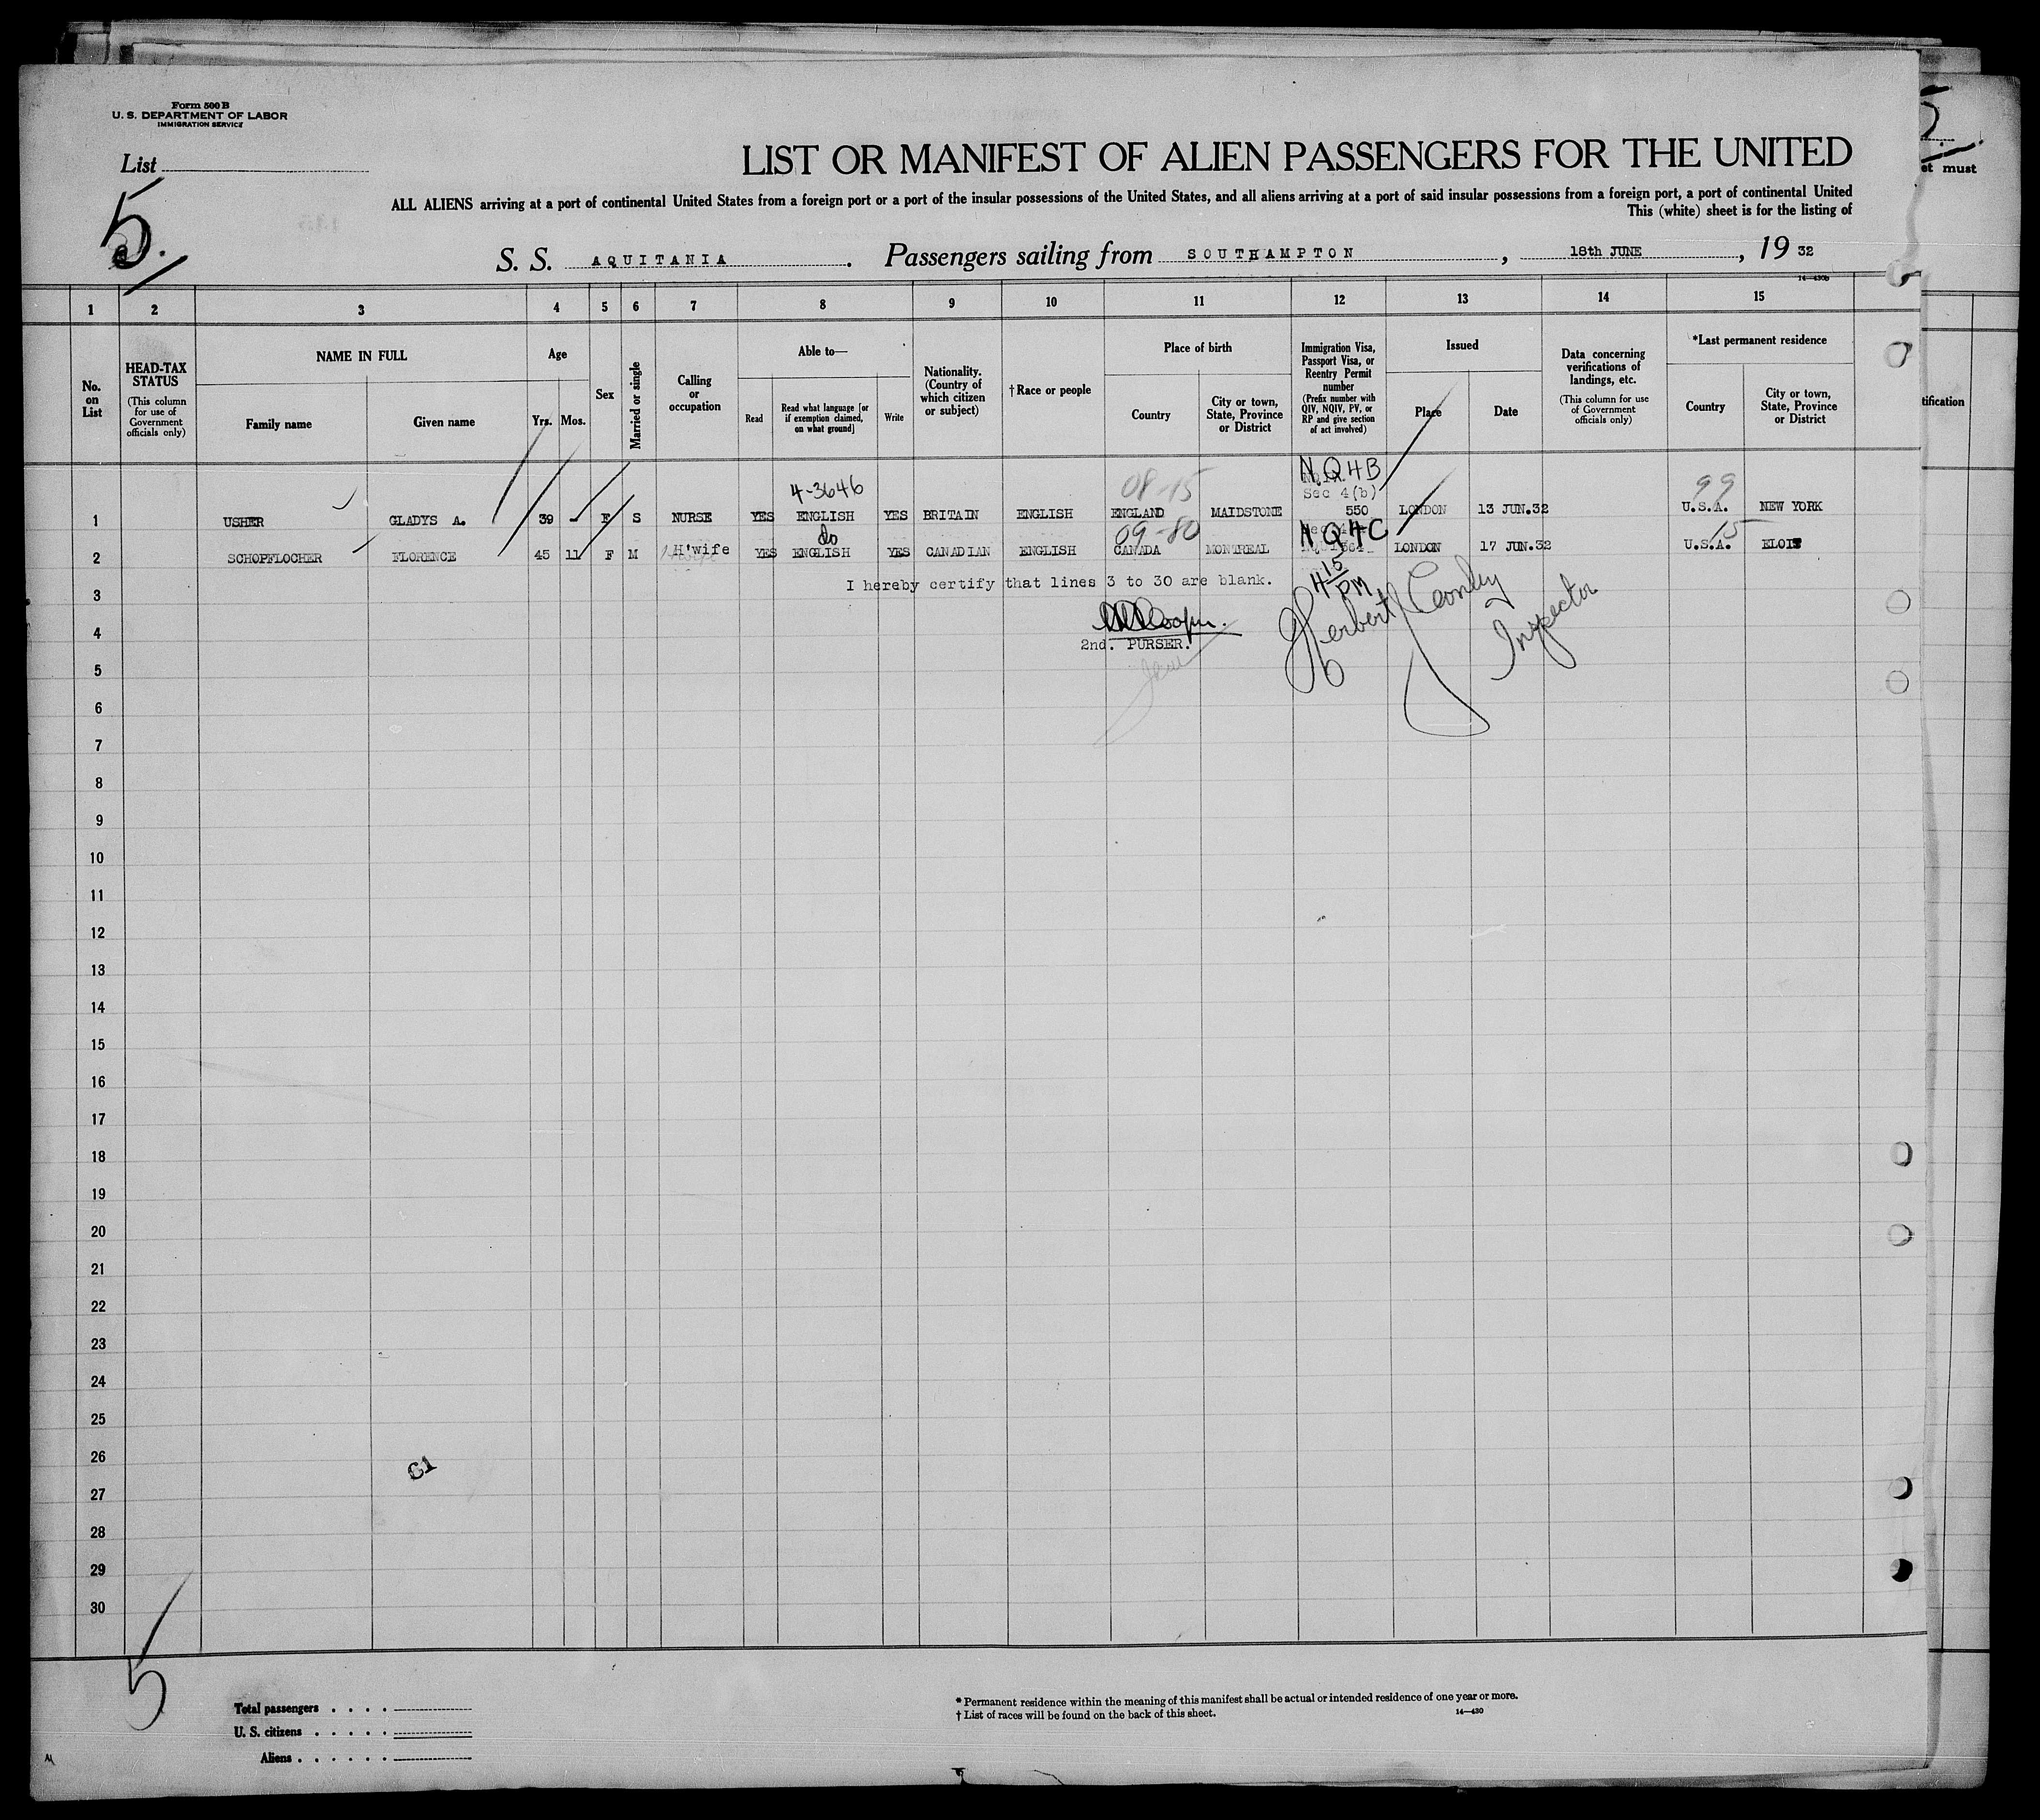 Form 500 B
U. S. DEPARTMENT OF LABOR
IMMIGRATION SERVICE
List
5.
LIST OR MANIFEST OF ALIEN PASSENGERS FOR THE UNITED
et must
ALL ALIENS arriving at a port of continental United States from a foreign port or a port of the insular possessions of the United States, and all aliens arriving at a port of said insular possessions from a foreign port, a port of continental United
This (white) sheet is for the listing of
S. S. AQUITANIA . Passengers sailing from SOUTHAMPTON , 18th JUNE , 19 32
14—430b
1 2 3 4 5 6 7 8 9 10 11 12 13 14 15
No. on List
HEAD-TAX STATUS
(This column for use of Government officials only)
NAME IN FULL
Family name
Given name
Age
Yrs. Mos.
Sex
Married or single
Calling or occupation
Able to—
Read
Read what language [or if exemption claimed, on what ground]
Write
Nationality. (Country of which citizen or subject)
† Race or people
Place of birth
Country
City or town, State, Province or District
Immigration Visa, Passport Visa, or Reentry Permit number
(Prefix number with QIV, NQIV, PV, or RP and give section of act involved)
Issued
Place
Date
Data concerning verifications of landings, etc.
(This column for use of Government officials only)
*Last permanent residence
Country
City or town, State, Province or District
tification
4-3646 08-15 N.Q4B 99
Sec 4(b)
1 USHER GLADYS A. 39 - F S NURSE YES ENGLISH YES BRITAIN ENGLISH ENGLAND MAIDSTONE 550 LONDON 13 JUN.32 U.S.A. NEW YORK
do 09-80 N Q4C 15
2 SCHOPFLOCHER FLORENCE 45 11 F M H'wife YES ENGLISH YES CANADIAN ENGLISH CANADA MONTREAL LONDON 17 JUN.32 U.S.A. ELOIT
I hereby certify that lines 3 to 30 are blank.
4 15 PM
3
Herbert Conley
Inspector
4
2nd. PURSER.
5
6
7
8
9
10
11
12
13
14
15
16
17
18
19
20
21
22
23
24
25
26
61
27
28
29
30
5
Total passengers
U. S. citizens
Aliens
* Permanent residence within the meaning of this manifest shall be actual or intended residence of one year or more.
† List of races will be found on the back of this sheet.
14—430